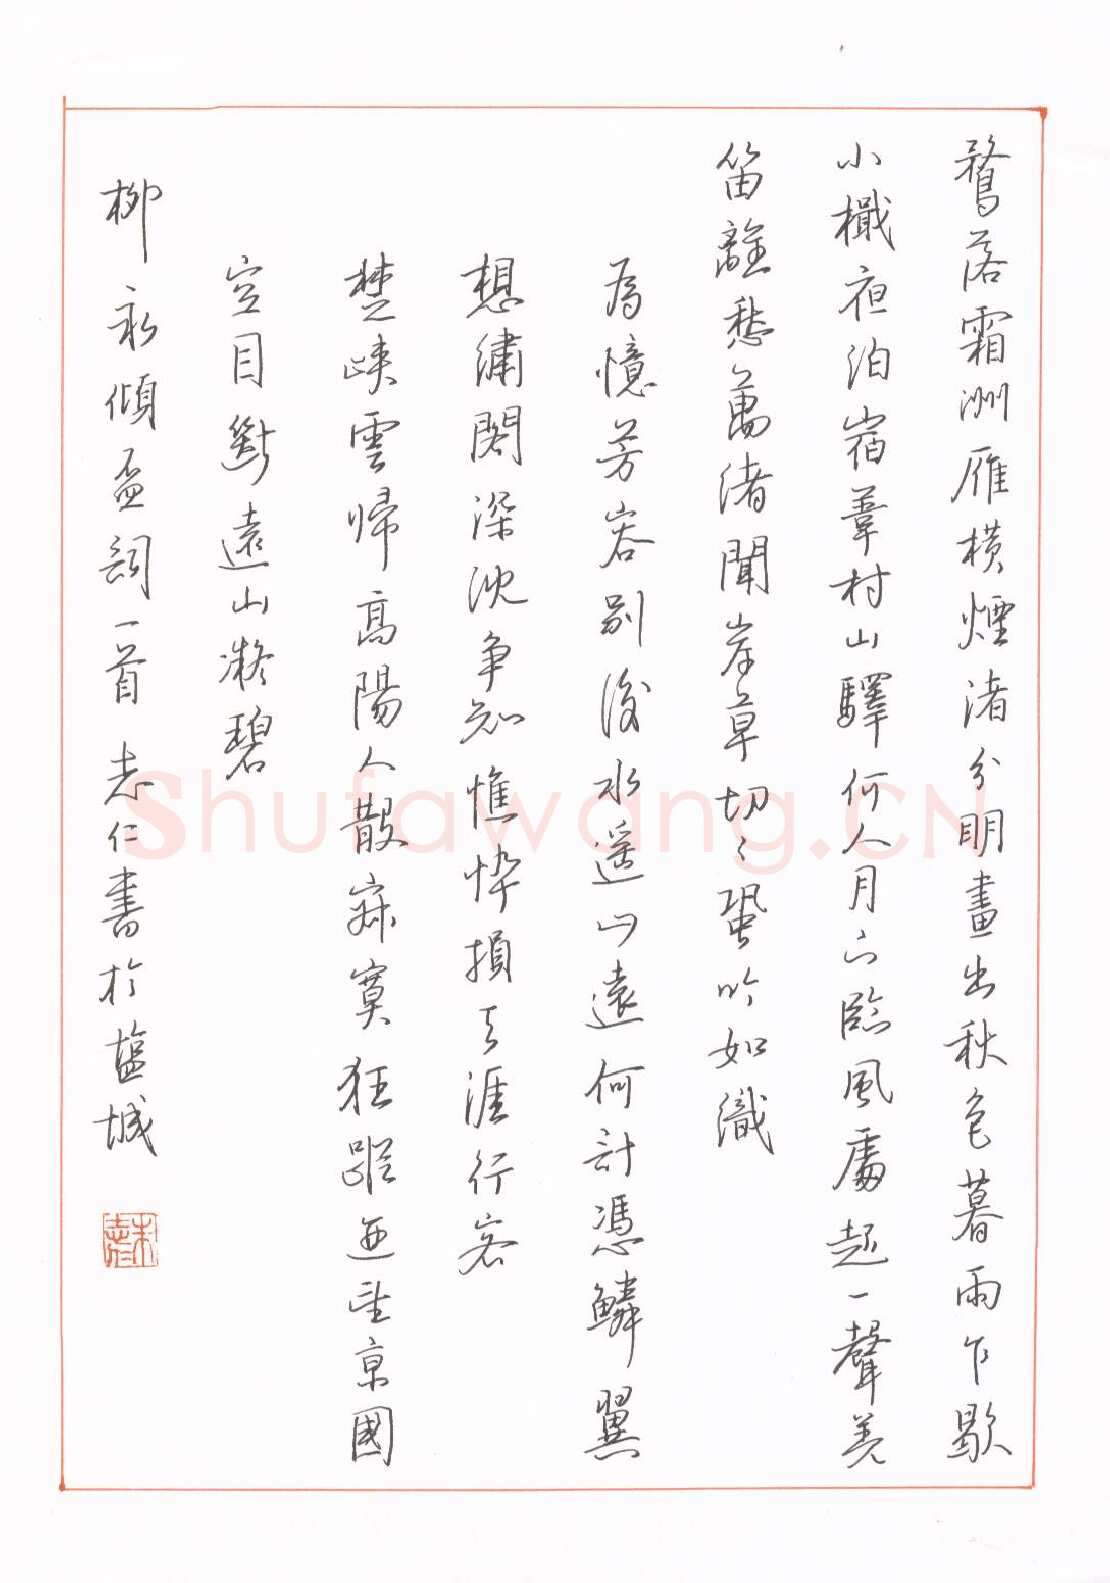 鶩落霜洲雁横煙渚分明畫出秋色暮雨乍歇
小檝夜泊宿葦村山驛何人月下臨風處起一聲羌
笛離愁萬緒聞岸草切々蛩吟如織
為憶芳容别後水遥山遠何計憑鱗翼
想繡閣深沈争知憔悴損天涯行客
楚峽雲歸高陽人散寂寞狂蹤望京國
空目斷遠山凝碧
柳永傾盃詞一首 志仁書於鹽城
Shufawang.CN